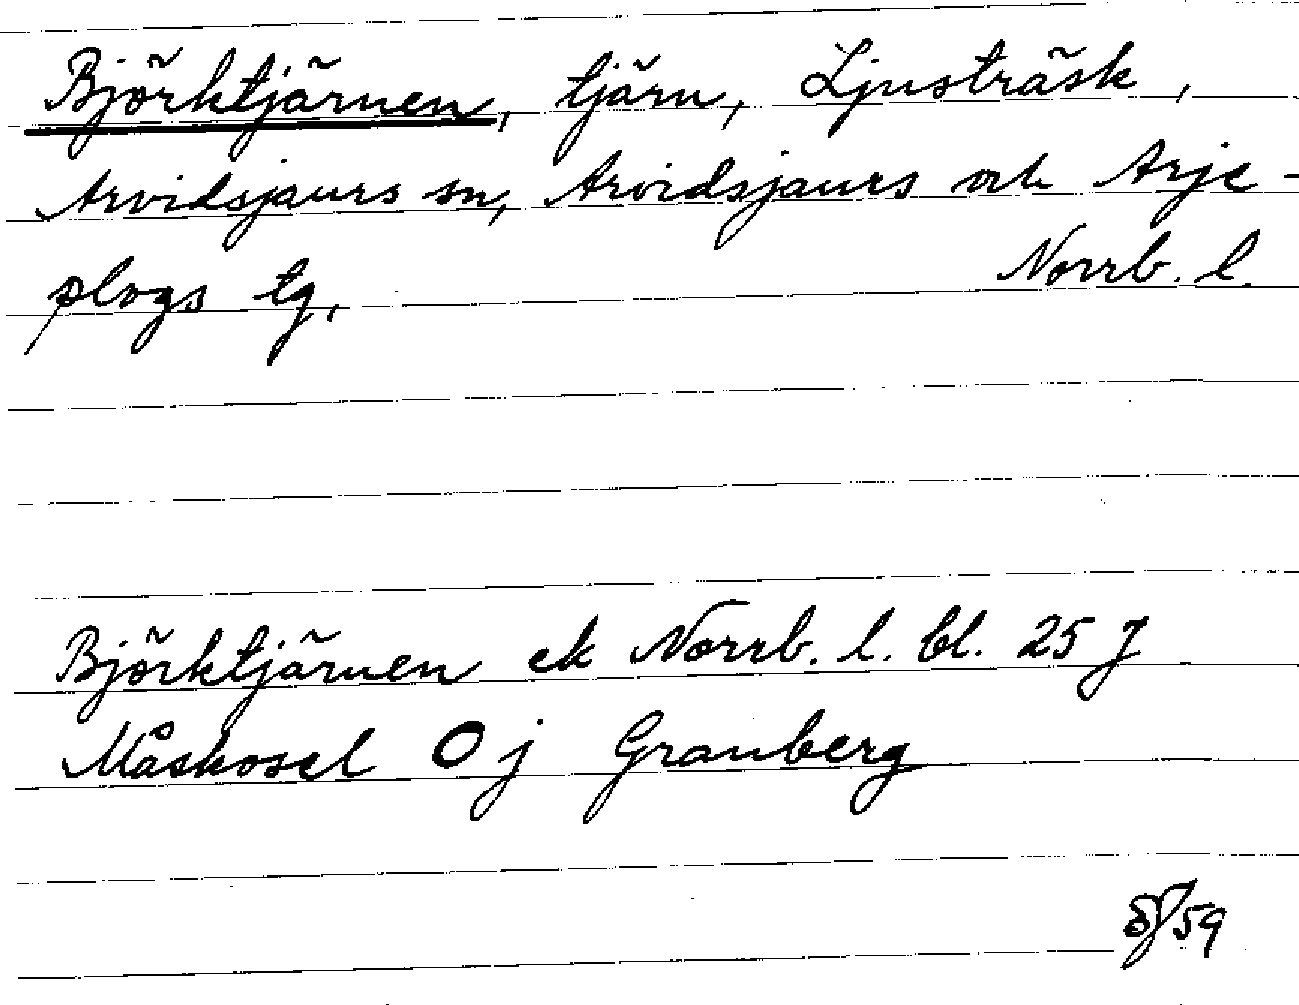 Björktjärnen, tjärn, Ljusträsk,
Arvidsjaurs sn, Arvidsjaurs och Arje-
plogs tg, Norrb. l.
Björktjärnen ek Norrb. l. bl. 25 J
Måskosel O j Granberg